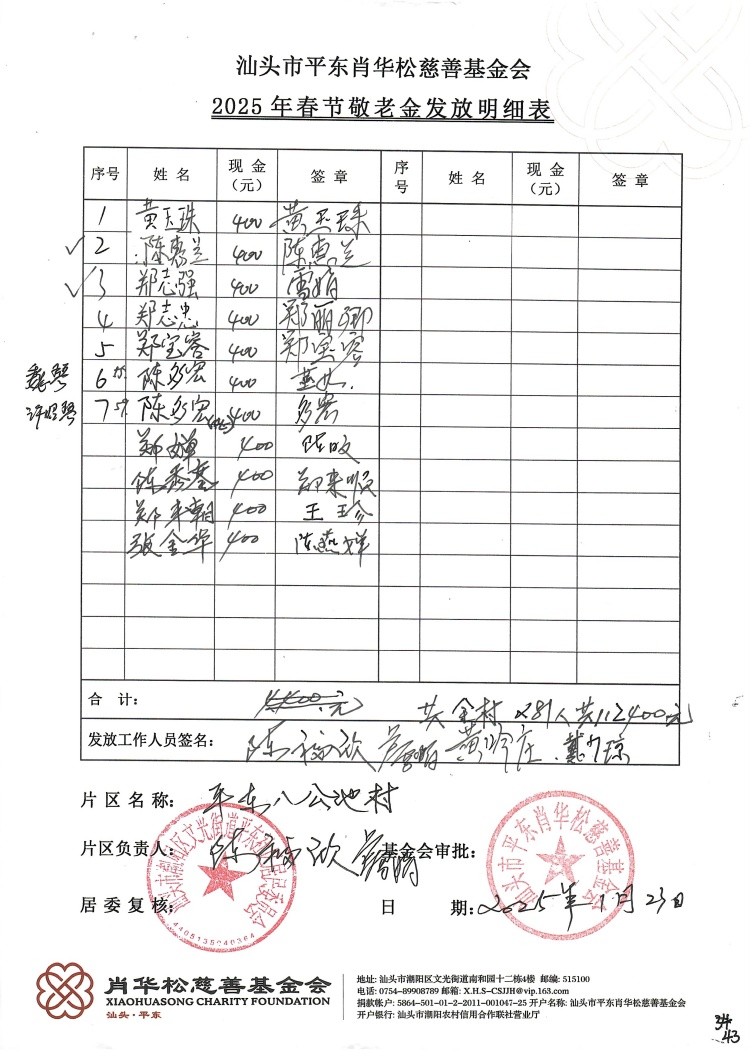 汕头市平东肖华松慈善基金会
2025年春节敬老金发放明细表
序号 姓名 现金（元） 签章 序号 姓名 现金（元） 签章
1 黄玉珠 400 黄玉珠
√ 2 陈惠兰 400 陈惠兰
√ 3 郑志强 400
4 郑志忠 400 郑丽卿
5 郑宝容 400 郑宝容
6 陈多宏 400
7 陈多宏 400
郑婵 400 陈
陈秀 400 郑来顺
郑来朝 400 王玉珍
张金华 400 陈燕婵
合计： 4400元 共全村281人共112400元
发放工作人员签名： 陈
片区名称： 平东八公地村
片区负责人： 陈
基金会审批：
居委复核：
日期： 2025年1月23日
汕头市平东肖华松慈善基金会
4405135040364
肖华松慈善基金会
XIAOHUASONG CHARITY FOUNDATION
汕头·平东
地址: 汕头市潮阳区文光街道南和园十二栋4楼 邮编: 515100
电话: 0754-89908789 邮箱: X.H.S-CSJJH@vip.163.com
捐款帐户: 5864-501-01-2-2011-001047-25 开户名称: 汕头市平东肖华松慈善基金会
开户银行: 汕头市潮阳农村信用合作联社营业厅
43